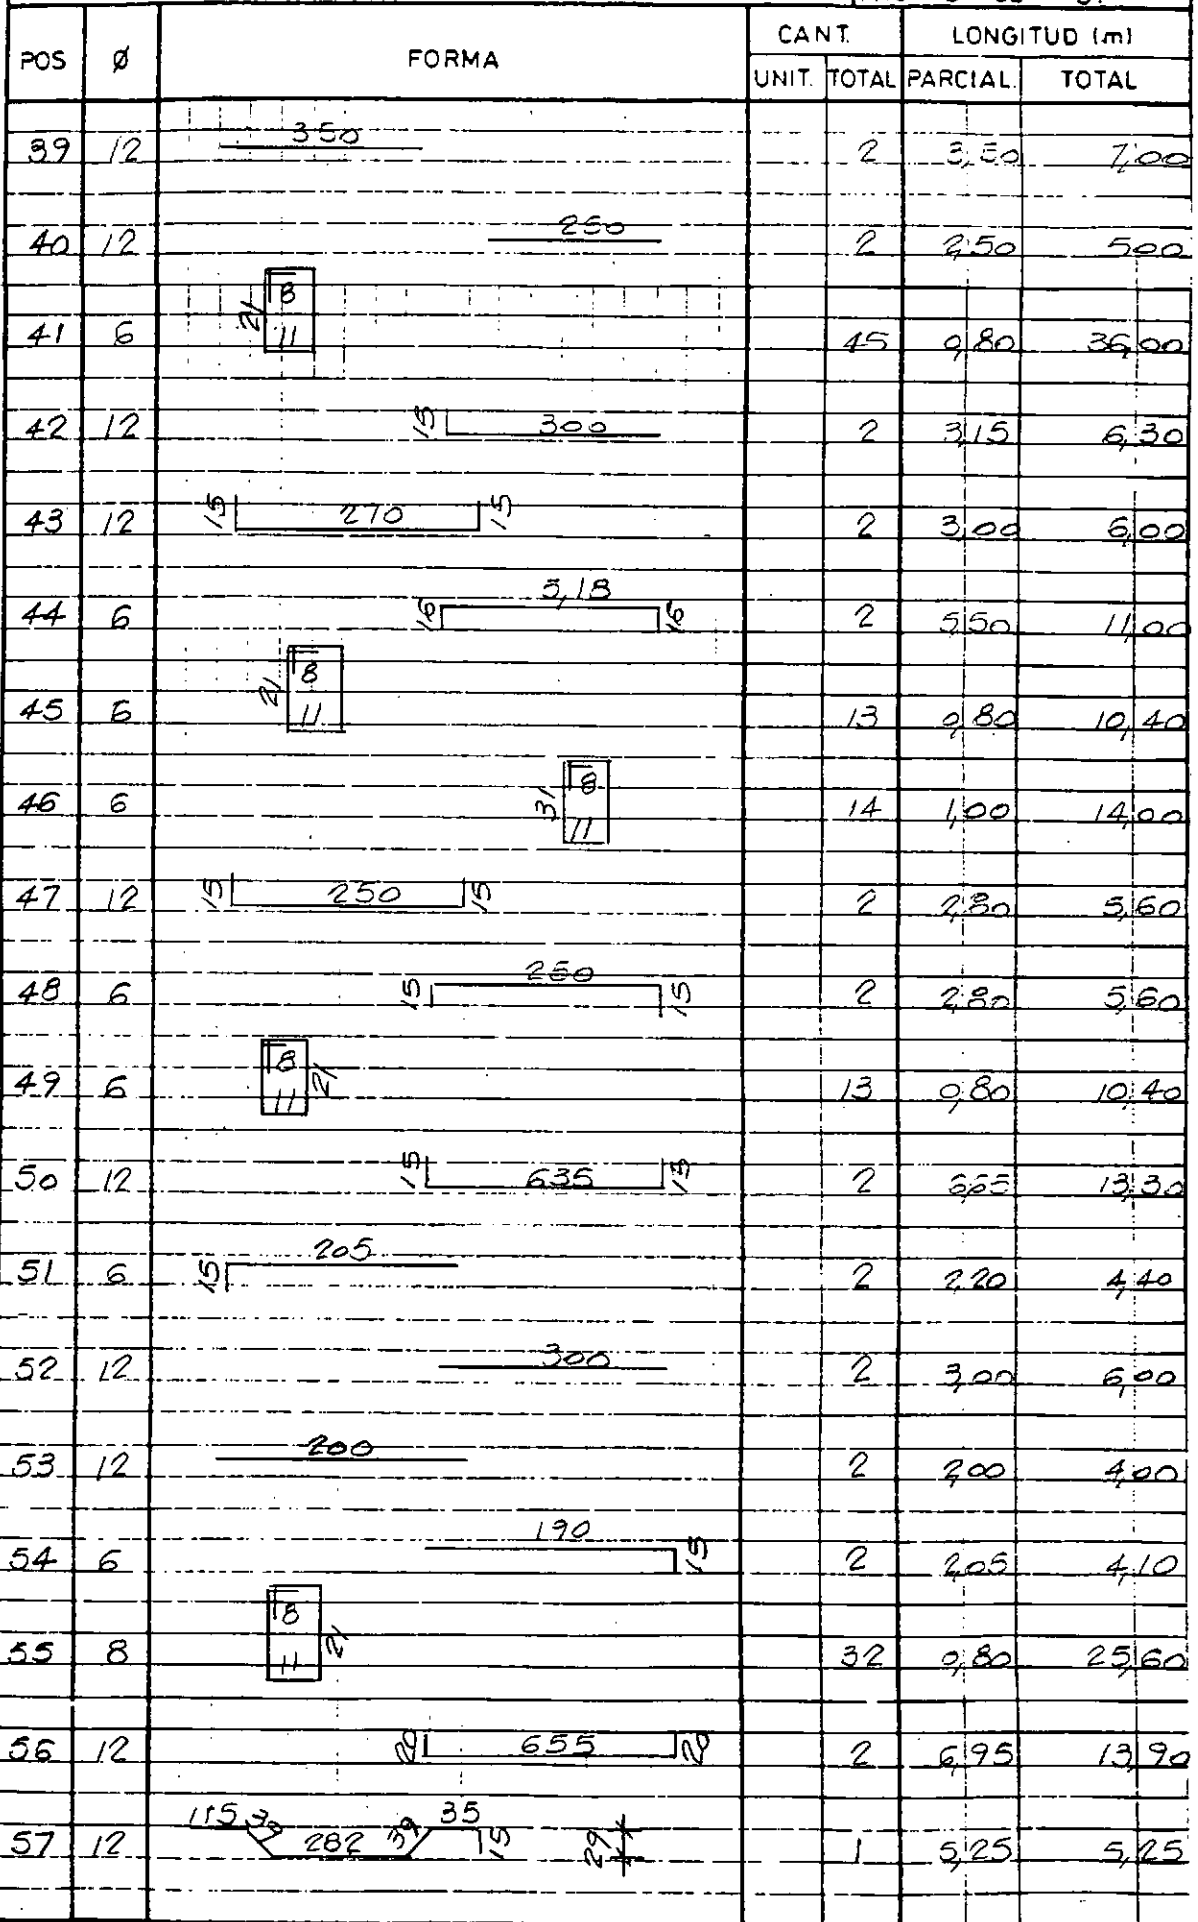 POS Ø FORMA CANT. LONGITUD (m)
UNIT. TOTAL PARCIAL. TOTAL
39 12 350 2 3,50 7,00
40 12 250 2 2,50 5,00
41 6 21 8 11 45 0,80 36,00
42 12 15 300 2 3,15 6,30
43 12 15 270 15 2 3,00 6,00
44 6 16 5,18 16 2 5,50 11,00
45 6 21 8 11 13 0,80 10,40
46 6 31 8 11 14 1,00 14,00
47 12 15 250 15 2 2,80 5,60
48 6 15 250 15 2 2,80 5,60
49 6 8 11 21 13 0,80 10,40
50 12 15 635 15 2 6,65 13,30
51 6 15 205 2 2,20 4,40
52 12 300 2 3,00 6,00
53 12 200 2 2,00 4,00
54 6 190 15 2 2,05 4,10
55 8 8 11 21 32 0,80 25,60
56 12 20 655 20 2 6,95 13,90
57 12 115 39 282 39 35 15 29 1 5,25 5,25